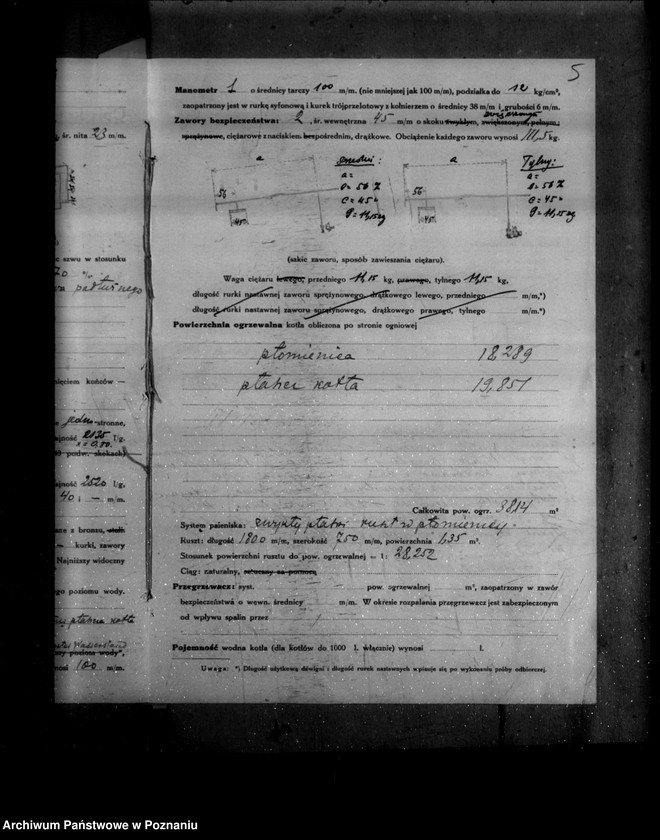 5
Manometr 1 o średnicy tarczy 100 m/m. (nie mniejszej jak 100 m/m), podziałka do 12 kg/cm²,
zaopatrzony jest w rurkę syfonową i kurek trójprzelotowy z kołnierzem o średnicy 38 m/m i grubości 6 m/m.
Zawory bezpieczeństwa: 2, śr. wewnętrzna 45 m/m o skoku zwykłym, zwiększonym, pełnym;
sprężynowe, ciężarowe z naciskiem bezpośrednim, drążkowe. Obciążenie każdego zaworu wynosi 111,5 kg.
śr. nita 23 m/m.
a
Przedni:
a=
b= 56
c= 45
a
Tylny:
a=
b= 56
c= 45
56
45
56
45
(szkic zaworu, sposób zawieszania ciężaru).
Waga ciężaru lewego, przedniego 11,15 kg, prawego, tylnego 11,15 kg,
długość rurki nastawnej zaworu sprężynowego, drążkowego lewego, przedniego m/m,*)
długość rurki nastawnej zaworu sprężynowego, drążkowego prawego, tylnego m/m.*)
Powierzchnia ogrzewalna kotła obliczona po stronie ogniowej
płomienica 18,289
płaszcz kotła 19,851
Całkowita pow. ogrz. 38,14 m²
System paleniska: zwykły płaski ruszt w płomienicy.
Ruszt: długość 1800 m/m, szerokość 750 m/m, powierzchnia 1,35 m².
Stosunek powierzchni rusztu do pow. ogrzewalnej = 1: 28,252
Ciąg: naturalny, sztuczny za pomocą
Przegrzewacz: syst. pow. ogrzewalnej m², zaopatrzony w zawór
bezpieczeństwa o wewn. średnicy m/m. W okresie rozpalania przegrzewacz jest zabezpieczonym
od wpływu spalin przez
Pojemność wodna kotła (dla kotłów do 1000 l. włącznie) wynosi l.
Uwaga: *) Długość użytkową dźwigni i długość rurek nastawnych wpisuje się po wykonaniu próby odbiorczej.
szwu w stosunku
nięciem końców —
jedno-stronne,
2135 l/g.
podw. skokach)
2520 l/g,
40; — m/m.
z bronzu, stali
— kurki, zawory
Najniższy widoczny
poziomu wody.
płaszcza kotła
100 m/m.
Archiwum Państwowe w Poznaniu